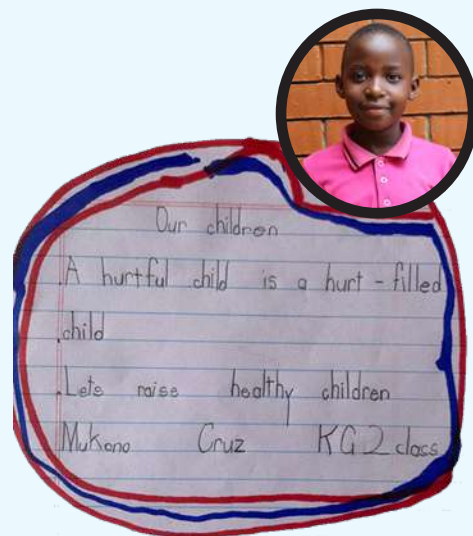 Our children
A hurtful child is a hurt - filled
child
Lets raise healthy children
Mukono Cruz KG2 class